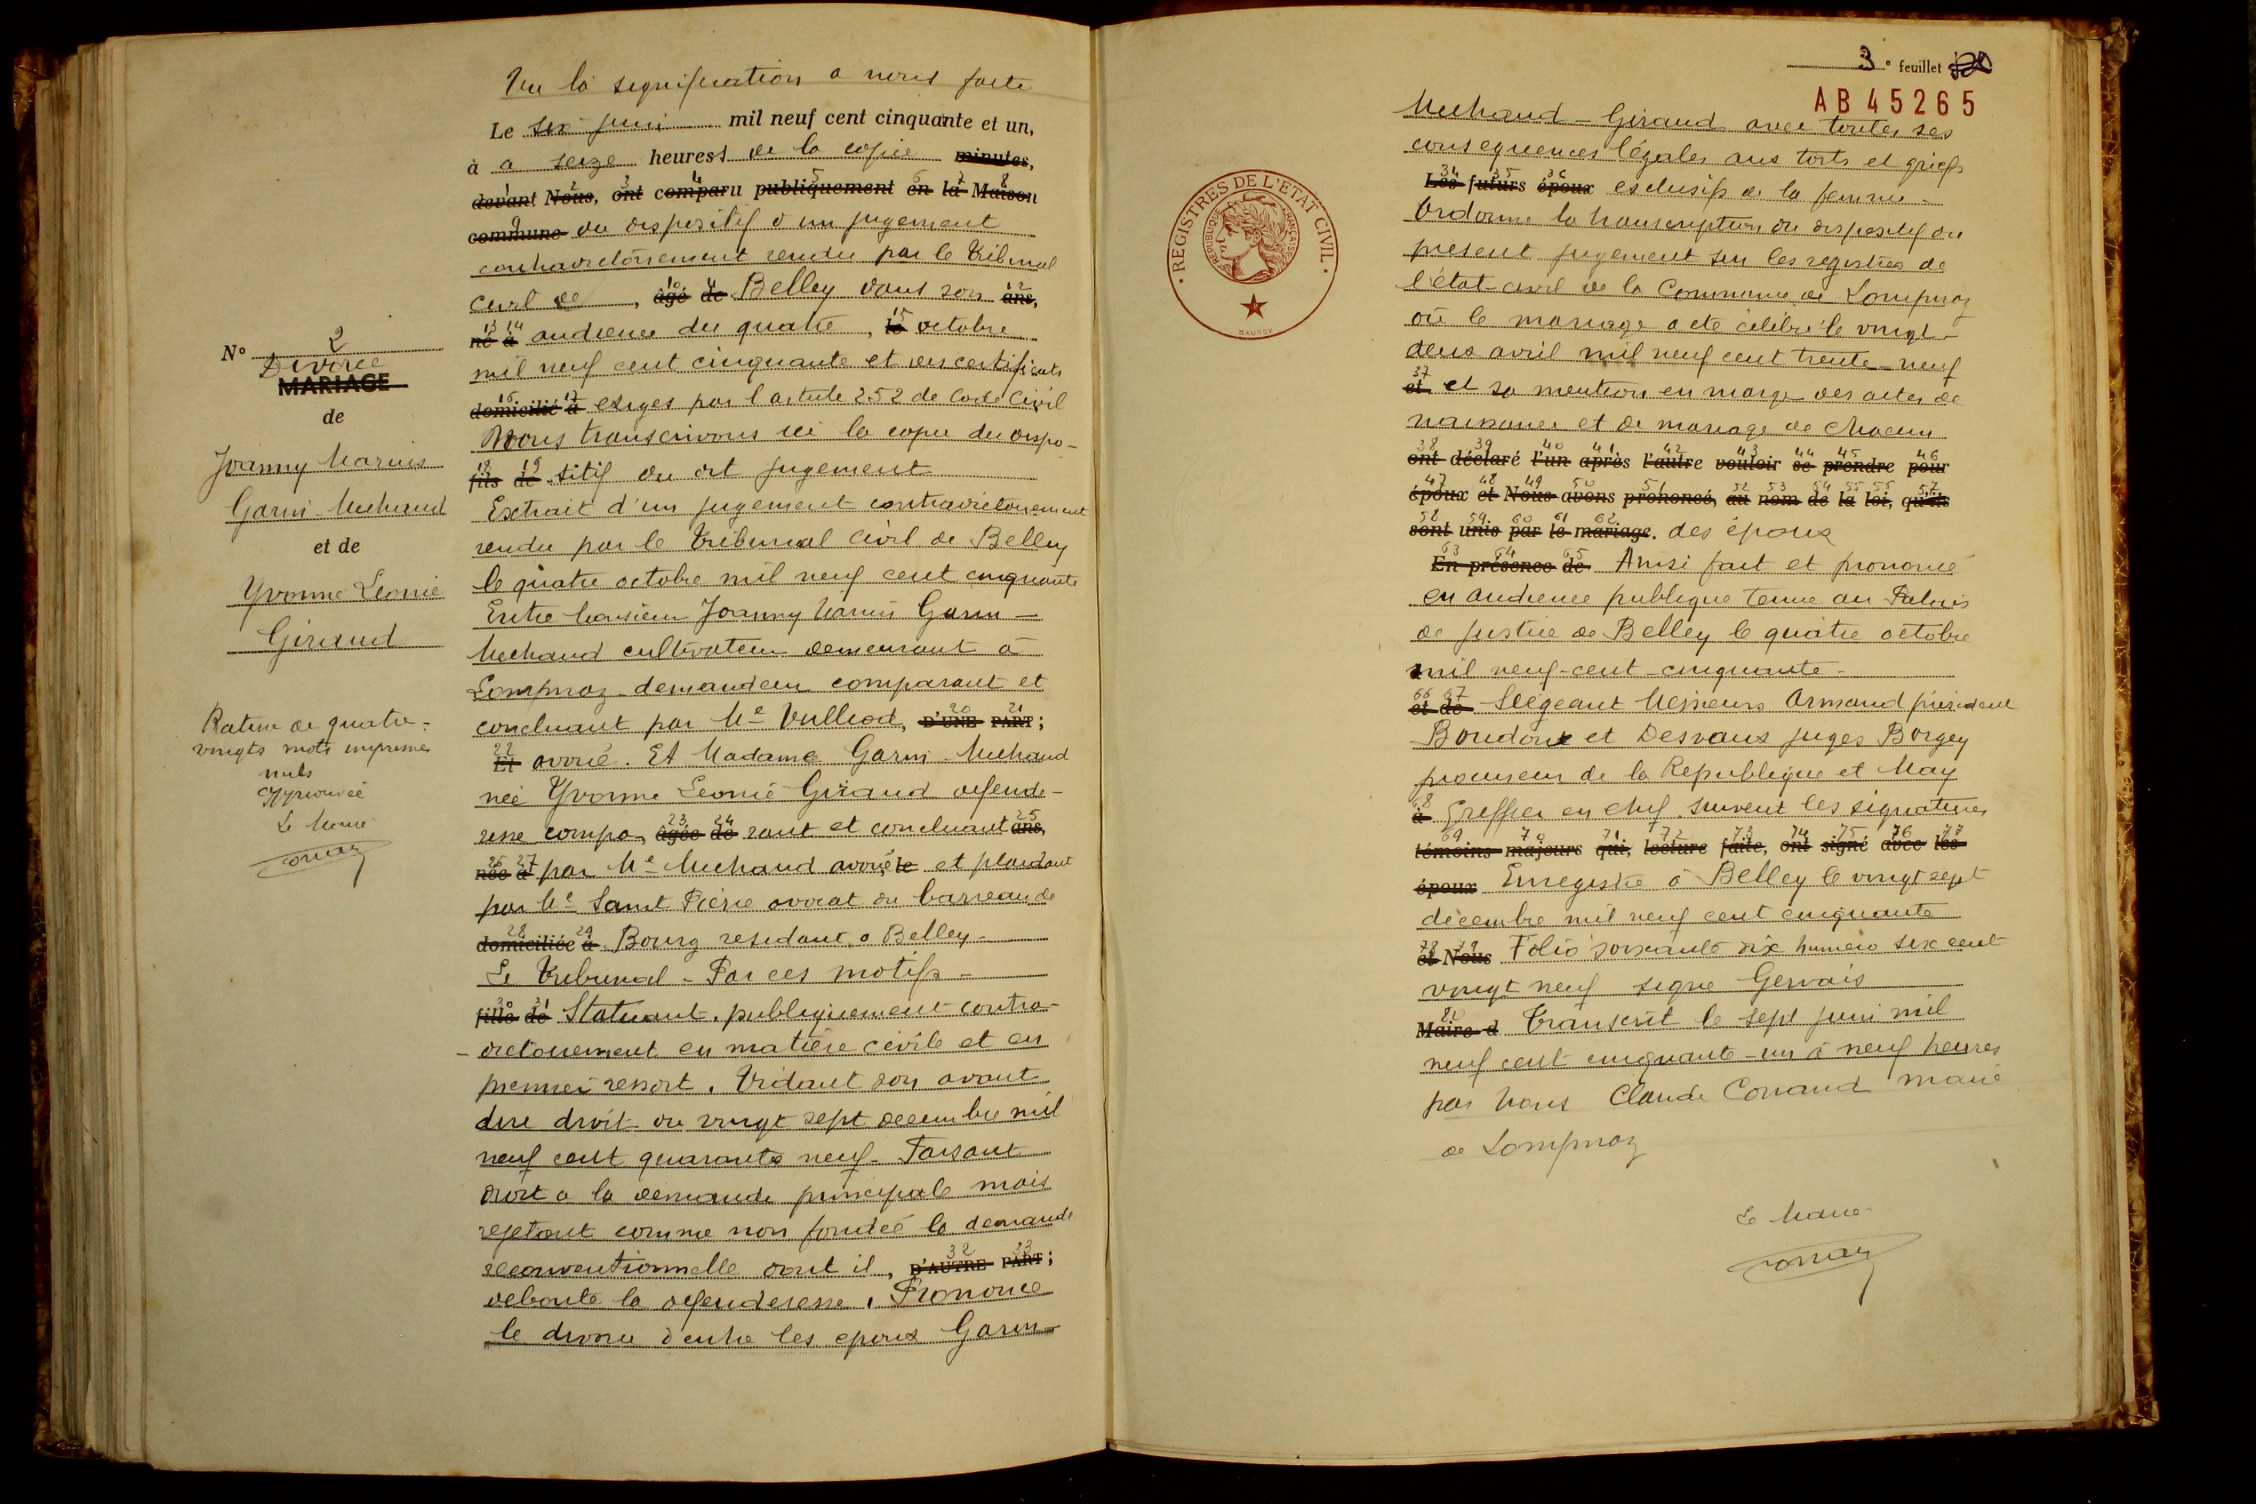 Vu la signification a nous faite
Le six juin mil neuf cent cinquante et un,
à a seize heures de la copie minutes,
devant Nous, ont comparu publiquement en la Maison
commune du dispositif d'un jugement
contradictoirement rendu par le Tribunal
Civil de , âgé de Belley dans son ans,
né à audience du quatre , le octobre
mil neuf cent cinquante et des certificats
domicilié à exiges par l'article 252 de Code Civil
Nous transcrivons ici la copie du dispo-
fils de sitif du dit jugement
Extrait d'un jugement contradictoirement
rendu par le Tribunal Civil de Belley
le quatre octobre mil neuf cent cinquante
Entre Monsieur Joanny Marius Garin-
Michaud cultivateur demeurant à
Lompnaz demandeur comparant et
concluant par Me Vulliod, D'UNE PART;
Et avoué. Et Madame Garin-Michaud
née Yvonne Léonie Giraud defende-
resse compa- âgée de rant et concluant ans,
née à par Me Michaud avoué le et plaidant
par Me Saint Pierre avocat du barreau de
domiciliée à Bourg residant a Belley-
Le Tribunal - Par ces motifs -
fille de Statuant publiquement contra-
dictoirement en matière civile et en
premier ressort. Vidant son avant
dire droit du vingt sept decembre mil
neuf cent quarante neuf- Faisant
droit a la demande principale mais
rejetant comme non fondée la demande
reconventionnelle dont il, D'AUTRE PART;
deboute la defenderesse, Prononce
le divorce d'entre les epoux Garin
N° 2
Divorce
MARIAGE
de
Joanny Marius
Garin-Michaud
et de
Yvonne Léonie
Giraud
Rature de quatre-
vingts mots imprimés
nuls
Approuvée
Le Maire
3e feuillet
AB45265
Michaud - Giraud avec toutes ses
consequences légales aux torts et griefs
Les futurs époux exclusifs de la femme-
Ordonne la transcription du dispositif du
présent jugement sur les registres de
l'état-civil de la Commune de Lompnaz
où le mariage a été célébré le vingt-
deux avril mil neuf cent trente-neuf
et et sa mention en marge des actes de
naissance et de mariage de chacun
ont déclaré l'un après l'autre vouloir se prendre pour
époux et Nous avons prononcé, au nom de la loi, qu'ils
sont unis par le mariage. des époux
En présence de Ainsi fait et prononcé
en audience publique tenue au Palais
de justice de Belley le quatre octobre
mil neuf-cent-cinquante-
et de Siégeant Messieurs Armand président
Boudoux et Desvaux juges Borgey
procureur de la Republique et May
à Greffier en chef suivent les signatures
témoins majeurs qui, lecture faite, ont signé avec les
époux Enregistré à Belley le vingt sept
décembre mil neuf cent cinquante
et Nous Folio soixante dix numero six cent
vingt neuf signe Gervais
Maire d Transcrit le sept juin mil
neuf cent cinquante-un à neuf heures
par Nous Claude Conand maire
de Lompnaz
Le Maire
REGISTRES DE L'ETAT CIVIL
REPUBLIQUE FRANÇAISE
DAUSSY